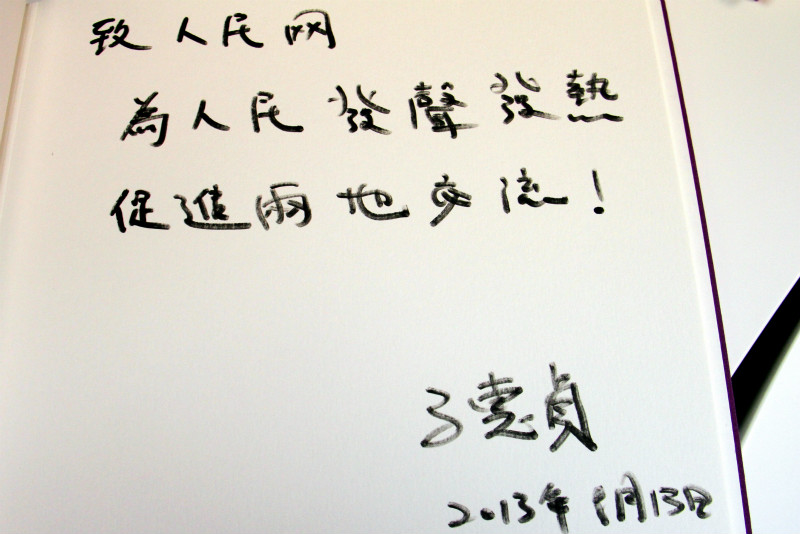 致人民网
為人民發聲發熱
促進兩地交流！
惠貞
2013年 月13日